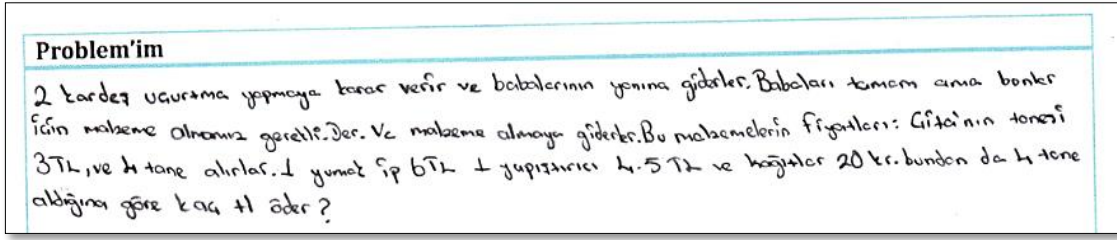 Problem'im
2 kardeş uçurtma yapmaya karar verir ve babalarının yanına giderler. Babaları tamam ama bonlar
için malzeme almamız gerekli. Der. Ve malzeme almaya giderler. Bu malzemelerin fiyatları: Çıta'nın tanesi
3TL, ve 4 tane alırlar. 1 yumak ip 6TL 1 yapıştırıcı 4.5 TL ve kağıtlar 20 kr. bundan da 4 tane
aldığına göre kaç tl öder?